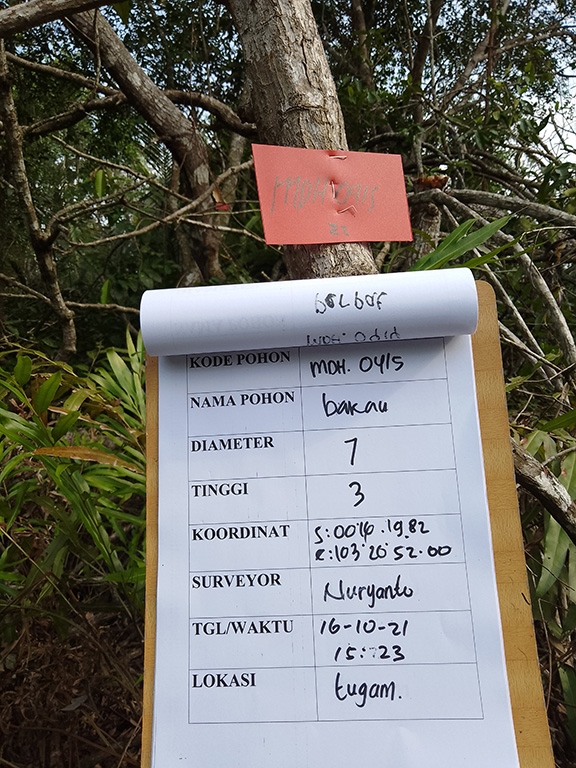 KODE POHON MDH. 0415
NAMA POHON bakau
DIAMETER 7
TINGGI 3
KOORDINAT S:00'16.19.82
E:103°20'52.00
SURVEYOR Nuryanto
TGL/WAKTU 16-10-21
15:23
LOKASI tugam.